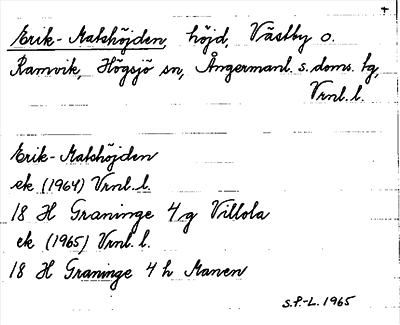 Erik-Matshöjden, höjd, Västby o.
Ramvik, Högsjö sn, Ångermanl. s. doms. fg,
Vrnl. l.
Erik-Matshöjden
ek (1964) Vrnl. l.
18 H Graninge 4 g Villola
ek (1965) Vrnl. l.
18 H Graninge 4 h Manen
S.P.-L. 1965